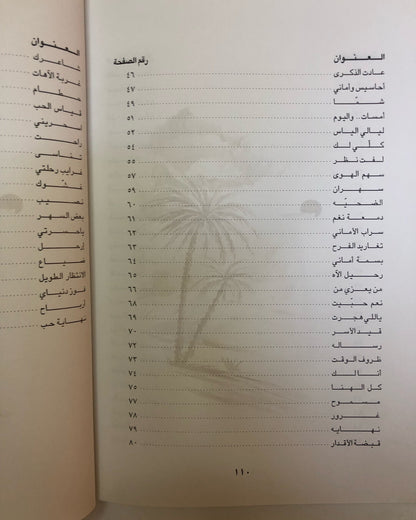 العنوان رقم الصفحة
عادت الذكرى ٤٦
أحاسيس وأماني ٤٧
شمّا ٤٩
أمسات.. واليوم ٥١
ليالي الياس ٥٢
كلّي لك ٥٤
لفت نظر ٥٥
سهم الهوى ٥٧
سهران ٥٩
الضحيّه ٦٠
دمعة نغم ٦١
سراب الأماني ٦٢
تغاريد الفرح ٦٣
بسمة أماني ٦٤
رحيل الآه ٦٥
من يعزي من ٦٧
نعم حبّيت ٦٨
ياللي هجرت ٦٩
قيد الأسر ٧٠
رساله ٧٢
ظروف الوقت ٧٣
أنا لك ٧٤
كل الهنا ٧٥
مسموح ٧٧
غرور ٧٨
نهايه ٧٩
قبضة الأقدار ٨٠
١١٠
العنوان
شاعرك
غربة الآهات
حطام
قياس الحب
اعذريني
راحت
تناسى
غرايب رحلتي
غشّوك
نصيب
بعض السهر
ياحسرتي
إرحل
ضياع
الانتظار الطويل
فوز دنياي
أرباح
نهاية حب